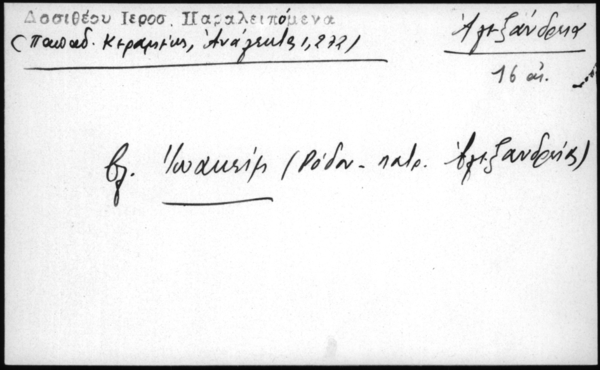 Δοσιθέου Ιεροσ. Παραλειπόμενα
(Παπαδ. Κεραμέως, Ἀνάλεκτα 1, 272)
Ἀλεξάνδρεια
16 αἰ.
βλ. Ἰωακείμ (Ρόδου - πατρ. Ἀλεξανδρείας)